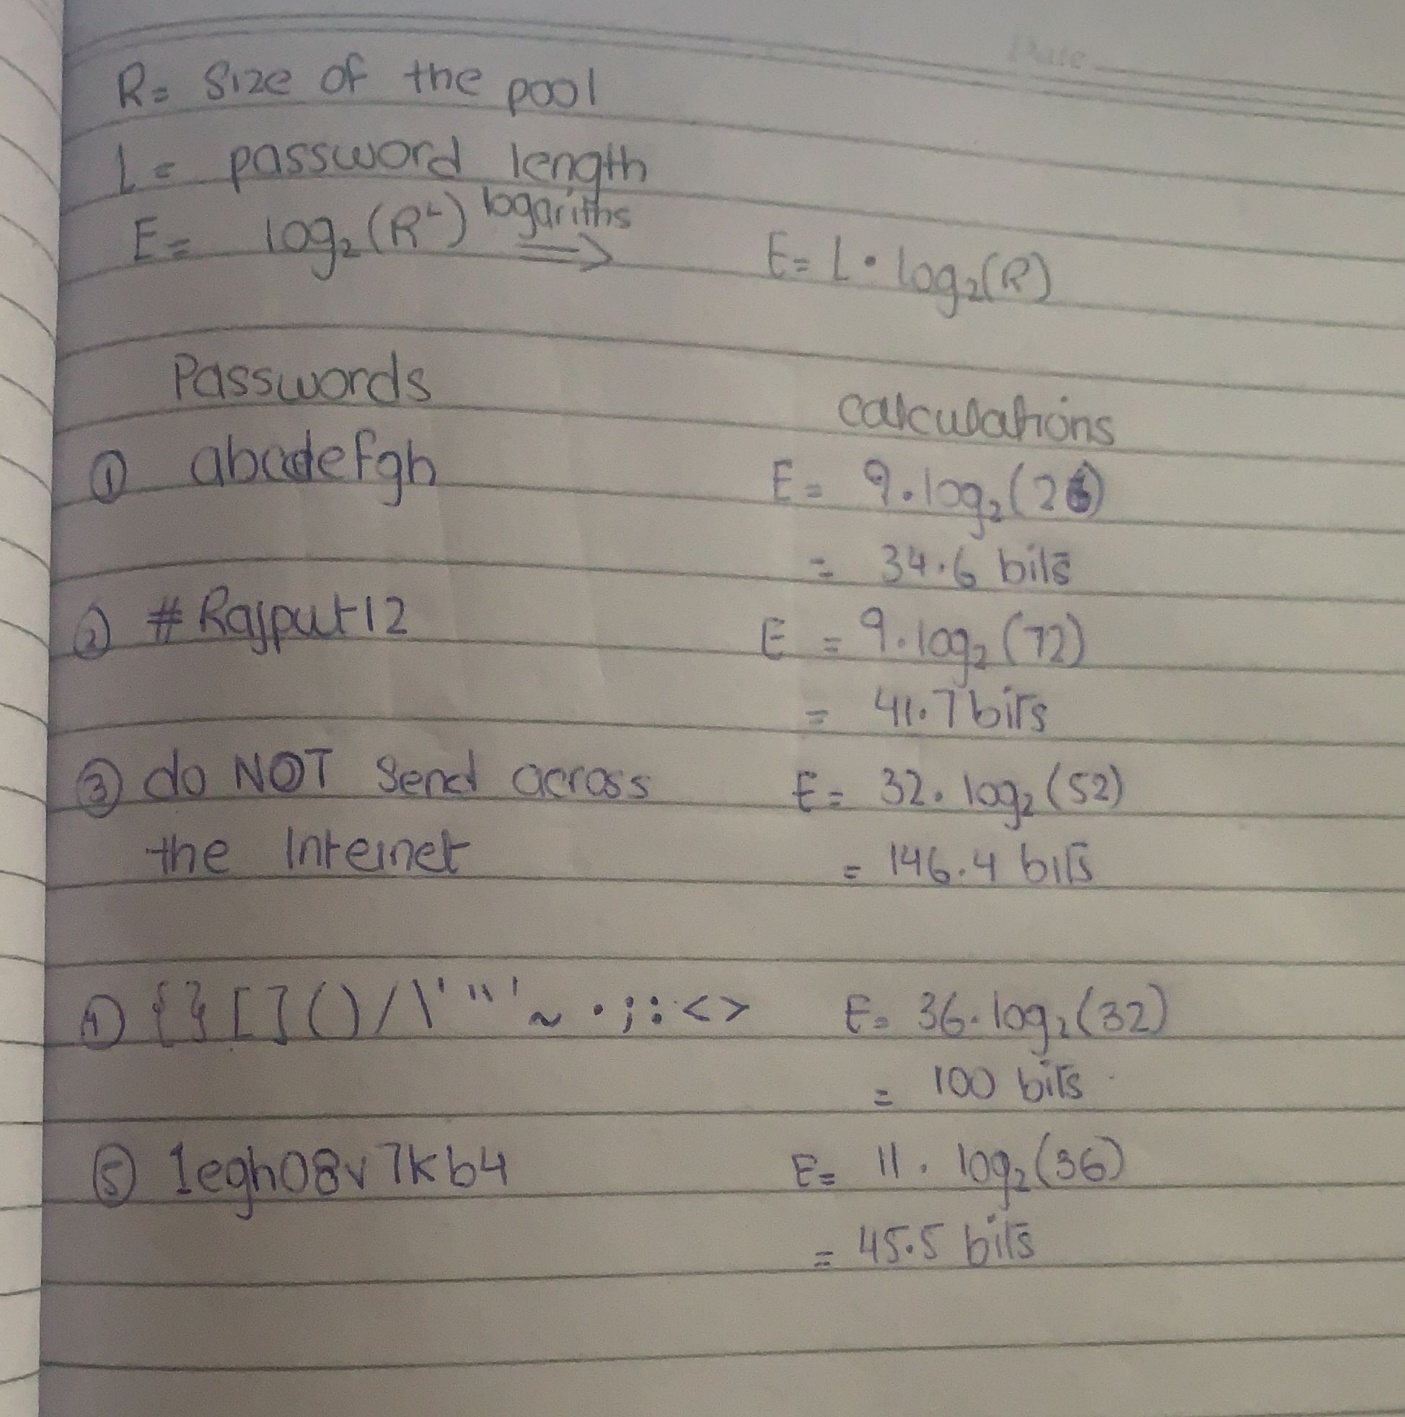 Date
R= Size of the pool
L= password length
E= log₂(Rᴸ) logariths ⟹ E= L • log₂(R)
Passwords calculations
① abcdefgh E= 9.log₂(26)
= 34.6 bits
② #Rajput12 E = 9.log₂(72)
= 41.7 bits
③ do NOT Send across E= 32. log₂(52)
the Internet = 146.4 bits
④ {}[]()/\'"'~.;:<> E= 36.log₂(32)
= 100 bits
⑤ 1egh08v7kb4 E= 11. log₂(36)
= 45.5 bits